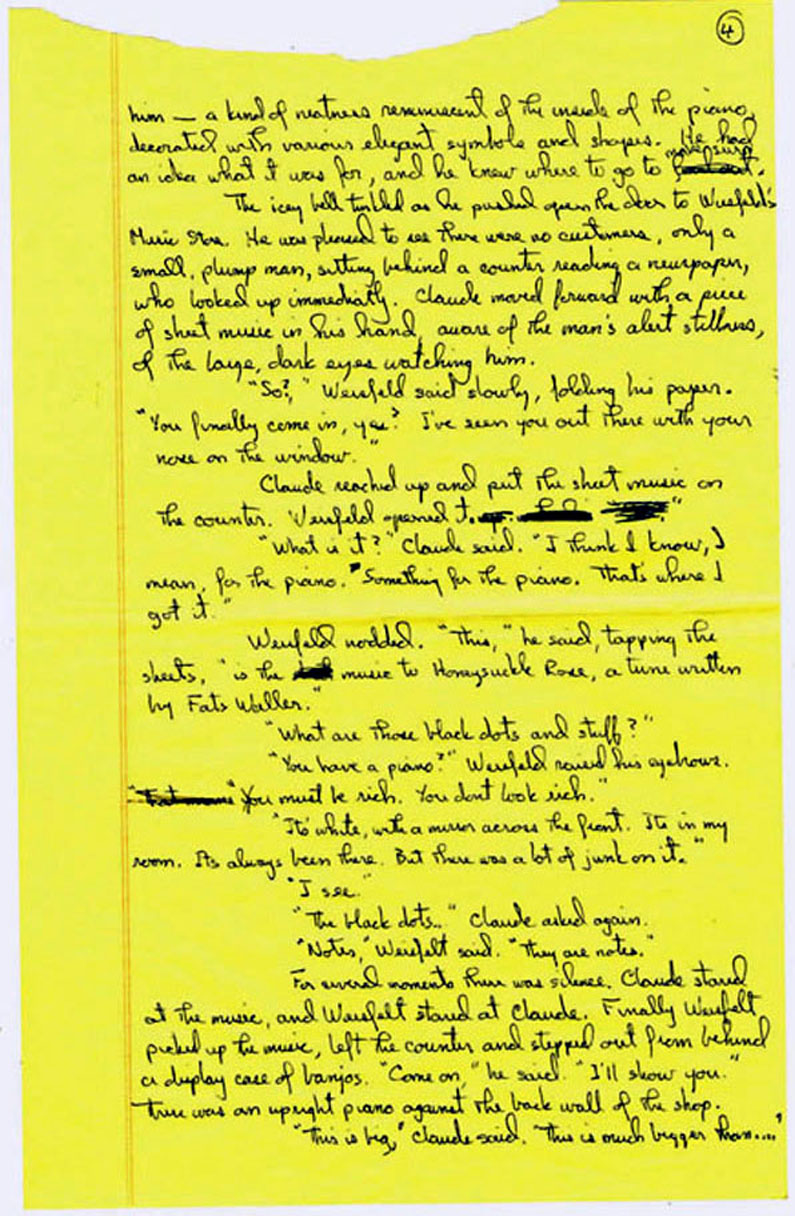 4
him — a kind of neatness reminiscent of the inside of the piano,
decorated with various elegant symbols and shapes. He had
an idea what it was for, and he knew where to go to make sure.
The icey bell tinkled as he pushed open the door to Weisfeld's
Music Store. He was pleased to see there were no customers, only a
small, plump man, sitting behind a counter reading a newspaper,
who looked up immediatly. Claude moved forward with a piece
of sheet music in his hand, aware of the man's alert stillness,
of the large, dark eyes watching him.
"So?," Weisfeld said slowly, folding his paper.
"You finally come in, yes? I've seen you out there with your
nose on the window."
Claude reached up and put the sheet music on
the counter. Weisfeld opened it.
"What is it?" Claude said. "I think I know, I
mean, for the piano. "Something for the piano. That's where I
got it."
Weisfeld nodded. "This," he said, tapping the
sheets, "is the music to Honeysuckle Rose, a tune written
by Fats Waller."
"What are those black dots and stuff?"
"You have a piano?" Weisfeld raised his eyebrows.
"You must be rich. You dont look rich."
"Its white, with a mirror across the front. Its in my
room. Its always been there. But there was a lot of junk on it."
"I see."
"The black dots.." Claude asked again.
"Notes," Weisfelt said. "They are notes."
For several moments there was silence. Claude stared
at the music, and Weisfelt stared at Claude. Finally Weisfelt
picked up the music, left the counter and stepped out from behind
a display case of banjos. "Come on," he said. "I'll show you."
There was an upright piano against the back wall of the shop.
"This is big," Claude said. "This is much bigger than...."